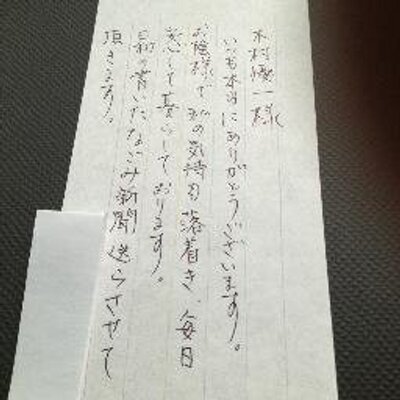 木村優一様
いつも本当にありがとうございます。
お陰様で私の気持も落着き、毎日
安心して暮らしております。
の書いたなごみ新聞送らさせて
頂きます。